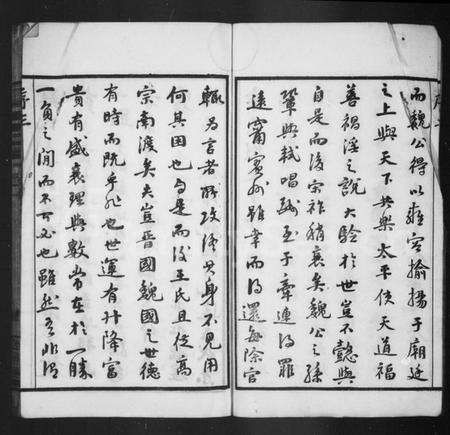 而魏公得以雍容揄揚于廟廷
之上與天下共樂太平使天道福
善禍淫之說大驗於世豈不懿與
自是而後宗祚稍衰矣魏公之孫
鞏與軾唱酬至于牽連得罪
遠竄賓州雖幸而得還每除官
輒為言者所攻治其身不見用
何其困也與是而後王氏且從高
宗南渡矣夫豈晉國魏國之世德
有時而既乎非也世運有升降富
貴有盛衰理與數常在於一勝
一負之間而不可必也雖然吾非謂
序三